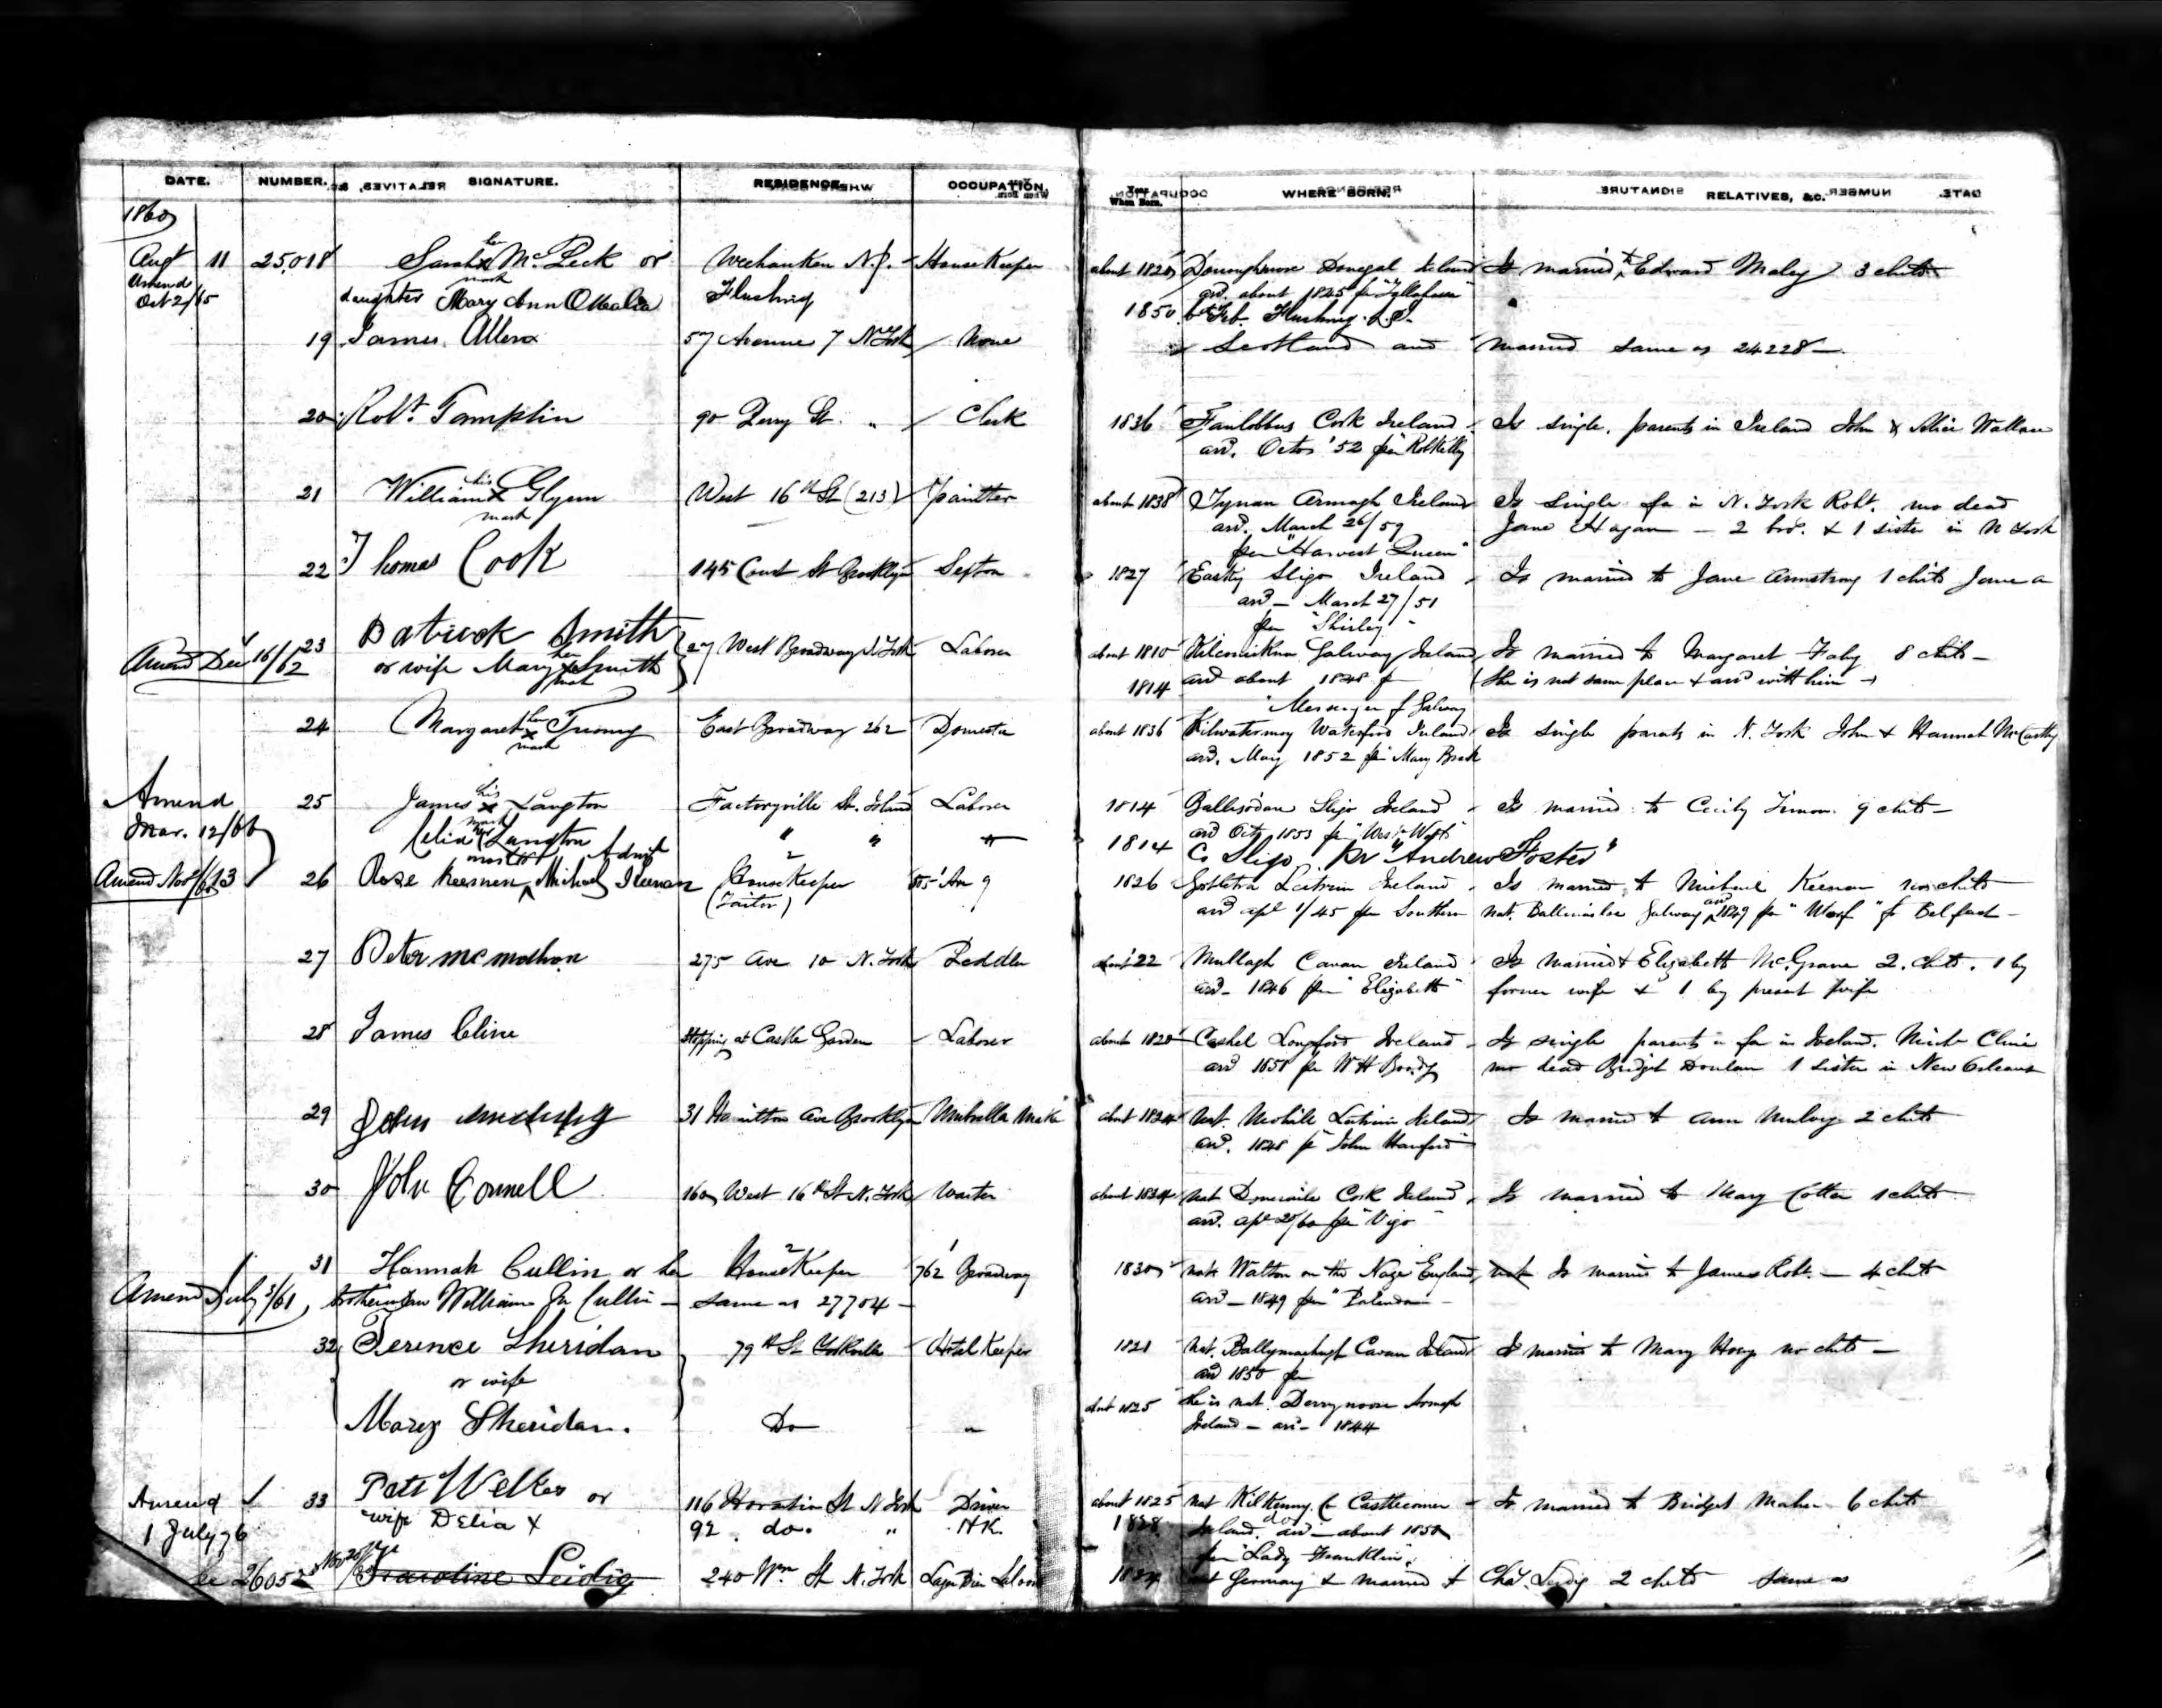 DATE. NUMBER. SIGNATURE. RESIDENCE. OCCUPATION. Year When Born. WHERE BORN. RELATIVES, &c.
1860
Augt 11 25,018 Sarah her x mark McPeck or Weehauken N.J. House Keeper about 1820 Donoughmore Donegal Ireland Is married to Edward Maley 3 chitd
Amend Oct 2/65 daughter Mary Ann OMalia Flushing arr. about 1845 pr
1850 Feb. Flushing L.I.
19 James Allen 57 Avenue 7 N York None Scotland and married same as 24228
20 Robt. Tamplin 90 Perry St. " Clerk 1836 Fanlobbus Cork Ireland Is single. parents in Ireland John & Alice Wallace
arr. Octor '52 per
21 William his x mark Glynn West 16th St (213) painter about 1838 Tynan Armagh Ireland Is single fa in N. York Robt. mo dead
arr. March 26/59 Jane Hagan - 2 bro. & 1 sister in N York
per "Harvest Queen"
22 Thomas Cook 145 Court St Brooklyn Sexton 1827 Easky Sligo Ireland Is married to Jane Armstrong 1 child Jane A
arr - March 27/51
per "Shirley"
23 Patrick Smith 27 West Broadway N York Laborer about 1810 Galway Ireland Is married to Margaret Fahy 8 chitd -
Amend Dec 16/62 or wife Mary her x mark Smith 1814 arr about 1848 pr (she is nat same place & arr with him -)
"Messenger" f Galway
24 Margaret her x mark East Broadway 262 Domestic about 1836 Waterford Ireland Is single parents in N. York John & Hannah McCarthy
arr. May 1852 per
25 James his x mark Langton Factoryville St. Island Laborer 1814 Ballisodare Sligo Ireland Is married to Cecily Timon. 9 chitd -
Amend Mar. 12/66 Celia her mark Langton " " " arr Oct 1853 pr
1814 Co Sligo. pr "Andrew Foster"
Amend Nov 13 26 Rose Keenan, Michael Keenan House Keeper (Tailor) 505 Ave 9 1826 Leitrim Ireland Is married to Michael Keenan no chitd
arr apl 1/45 per Southern nat. Ballinasloe Galway arr 1849 per f Belfast -
27 Peter McMahon 275 Ave 10 N. York Peddler abut '22 Mullagh Cavan Ireland Is married to Elizabeth McGrane 2. chitd. 1 by
arr - 1846 per "Elizabeth" former wife & 1 by present wife
28 James Cline Stopping at Castle Garden Laborer about 1828 Cashel Longford Ireland Is single parents fa in Ireland. Michl Cline
arr 1850 pr mo dead Bridget Donlan 1 sister in New Orleans
29 John 31 Hamilton Ave Brooklyn Umbrella Maker about 1824 nat. Mohill Leitrim Ireland Is married to Ann Mulvey 2 chitd
arr. 1848 pr
30 John Connell 160 West 16th St N. York Waiter about 1834 nat Doneraile Cork Ireland Is married to Mary Cotter 1 chitd
arr. apl 20/60 per "Vigo"
31 Hannah Cullin or her House Keeper 762 Broadway 1830 nat Walton on the Naze England Is married to James Robt. - 4 chitd
Amend July 3/61 brother in law William Jn Cullin - same as 27704 - arr - 1849 per
32 Terence Sheridan 79th St Yorkville Hotel Keeper 1821 nat. Cavan Ireland Is married to Mary Hoey no chitd -
or wife arr 1850 per
Mary Sheridan. Do " abut 1825 she is nat. Derrynoose Armagh
Ireland - arr - 1844
Amend 1 July 76 33 or 116 Horatio St N York Driver about 1825 nat Kilkenny Co Castlecomer Is married to Bridget Maher 6 chitd
wife Delia X 92 do. " H.K. 1828 do Ireland. arr - about 1850
per "Lady Franklin"
26052 Caroline Leidig 240 Wm St N. York Lager Bier Saloon nat Germany & married to Chas. Leidig 2 chitd same as